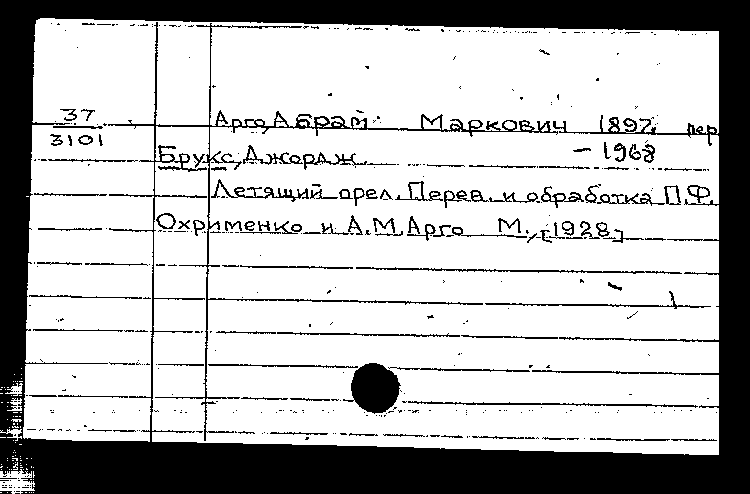 37
3101
Арго, Абрам Маркович 1897, пер
Брукс, Джордж. - 1968
Летящий орел. Перев. и обработка П.Ф.
Охрименко и А.М. Арго М., [1928]